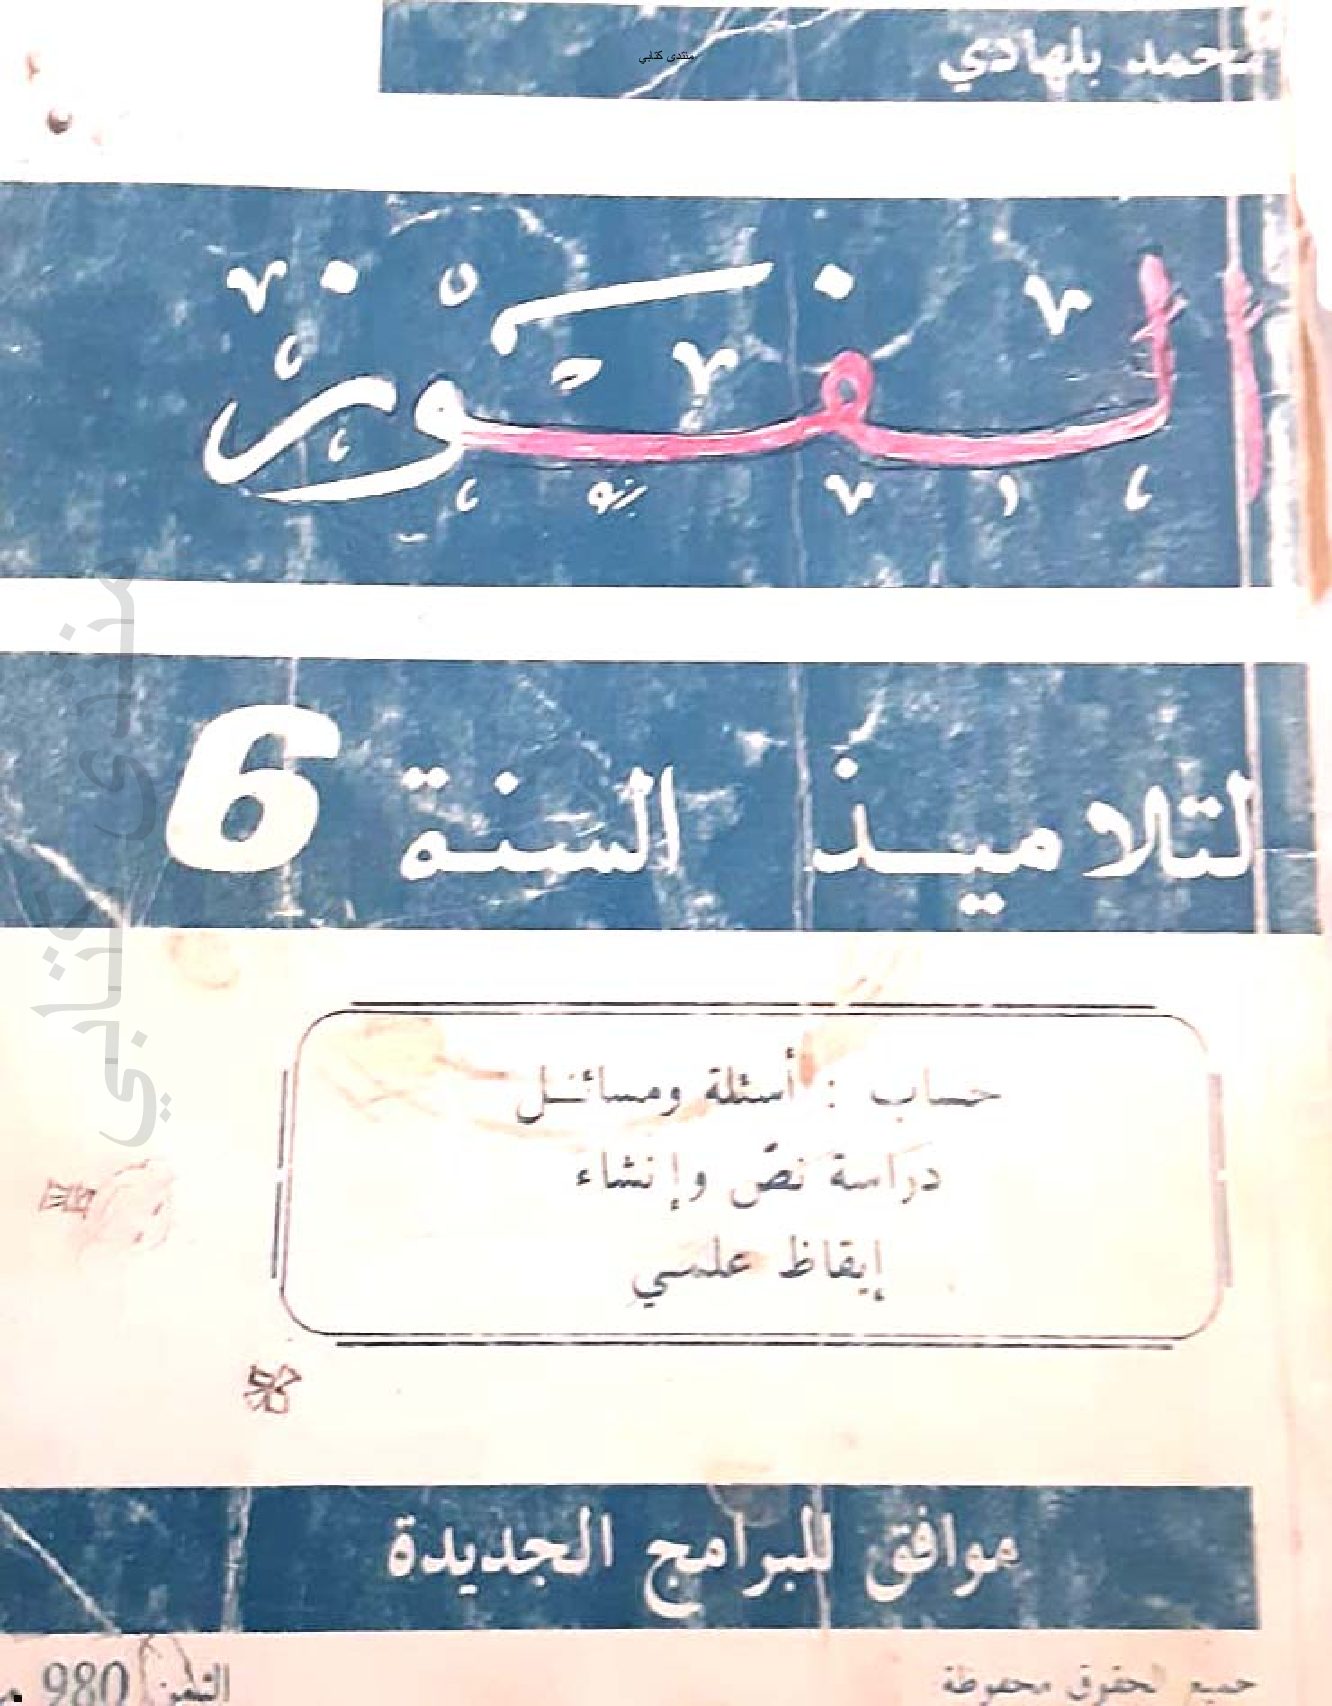 محمد بلهادي
منتدى كتابي
الفوز
لتلاميذ السنة 6
منتدى كتابي
حساب : أسئلة ومسائل
دراسة نص وإنشاء
إيقاظ علمي
موافق للبرامج الجديدة
جميع الحقوق محفوظة
الثمن 980 م